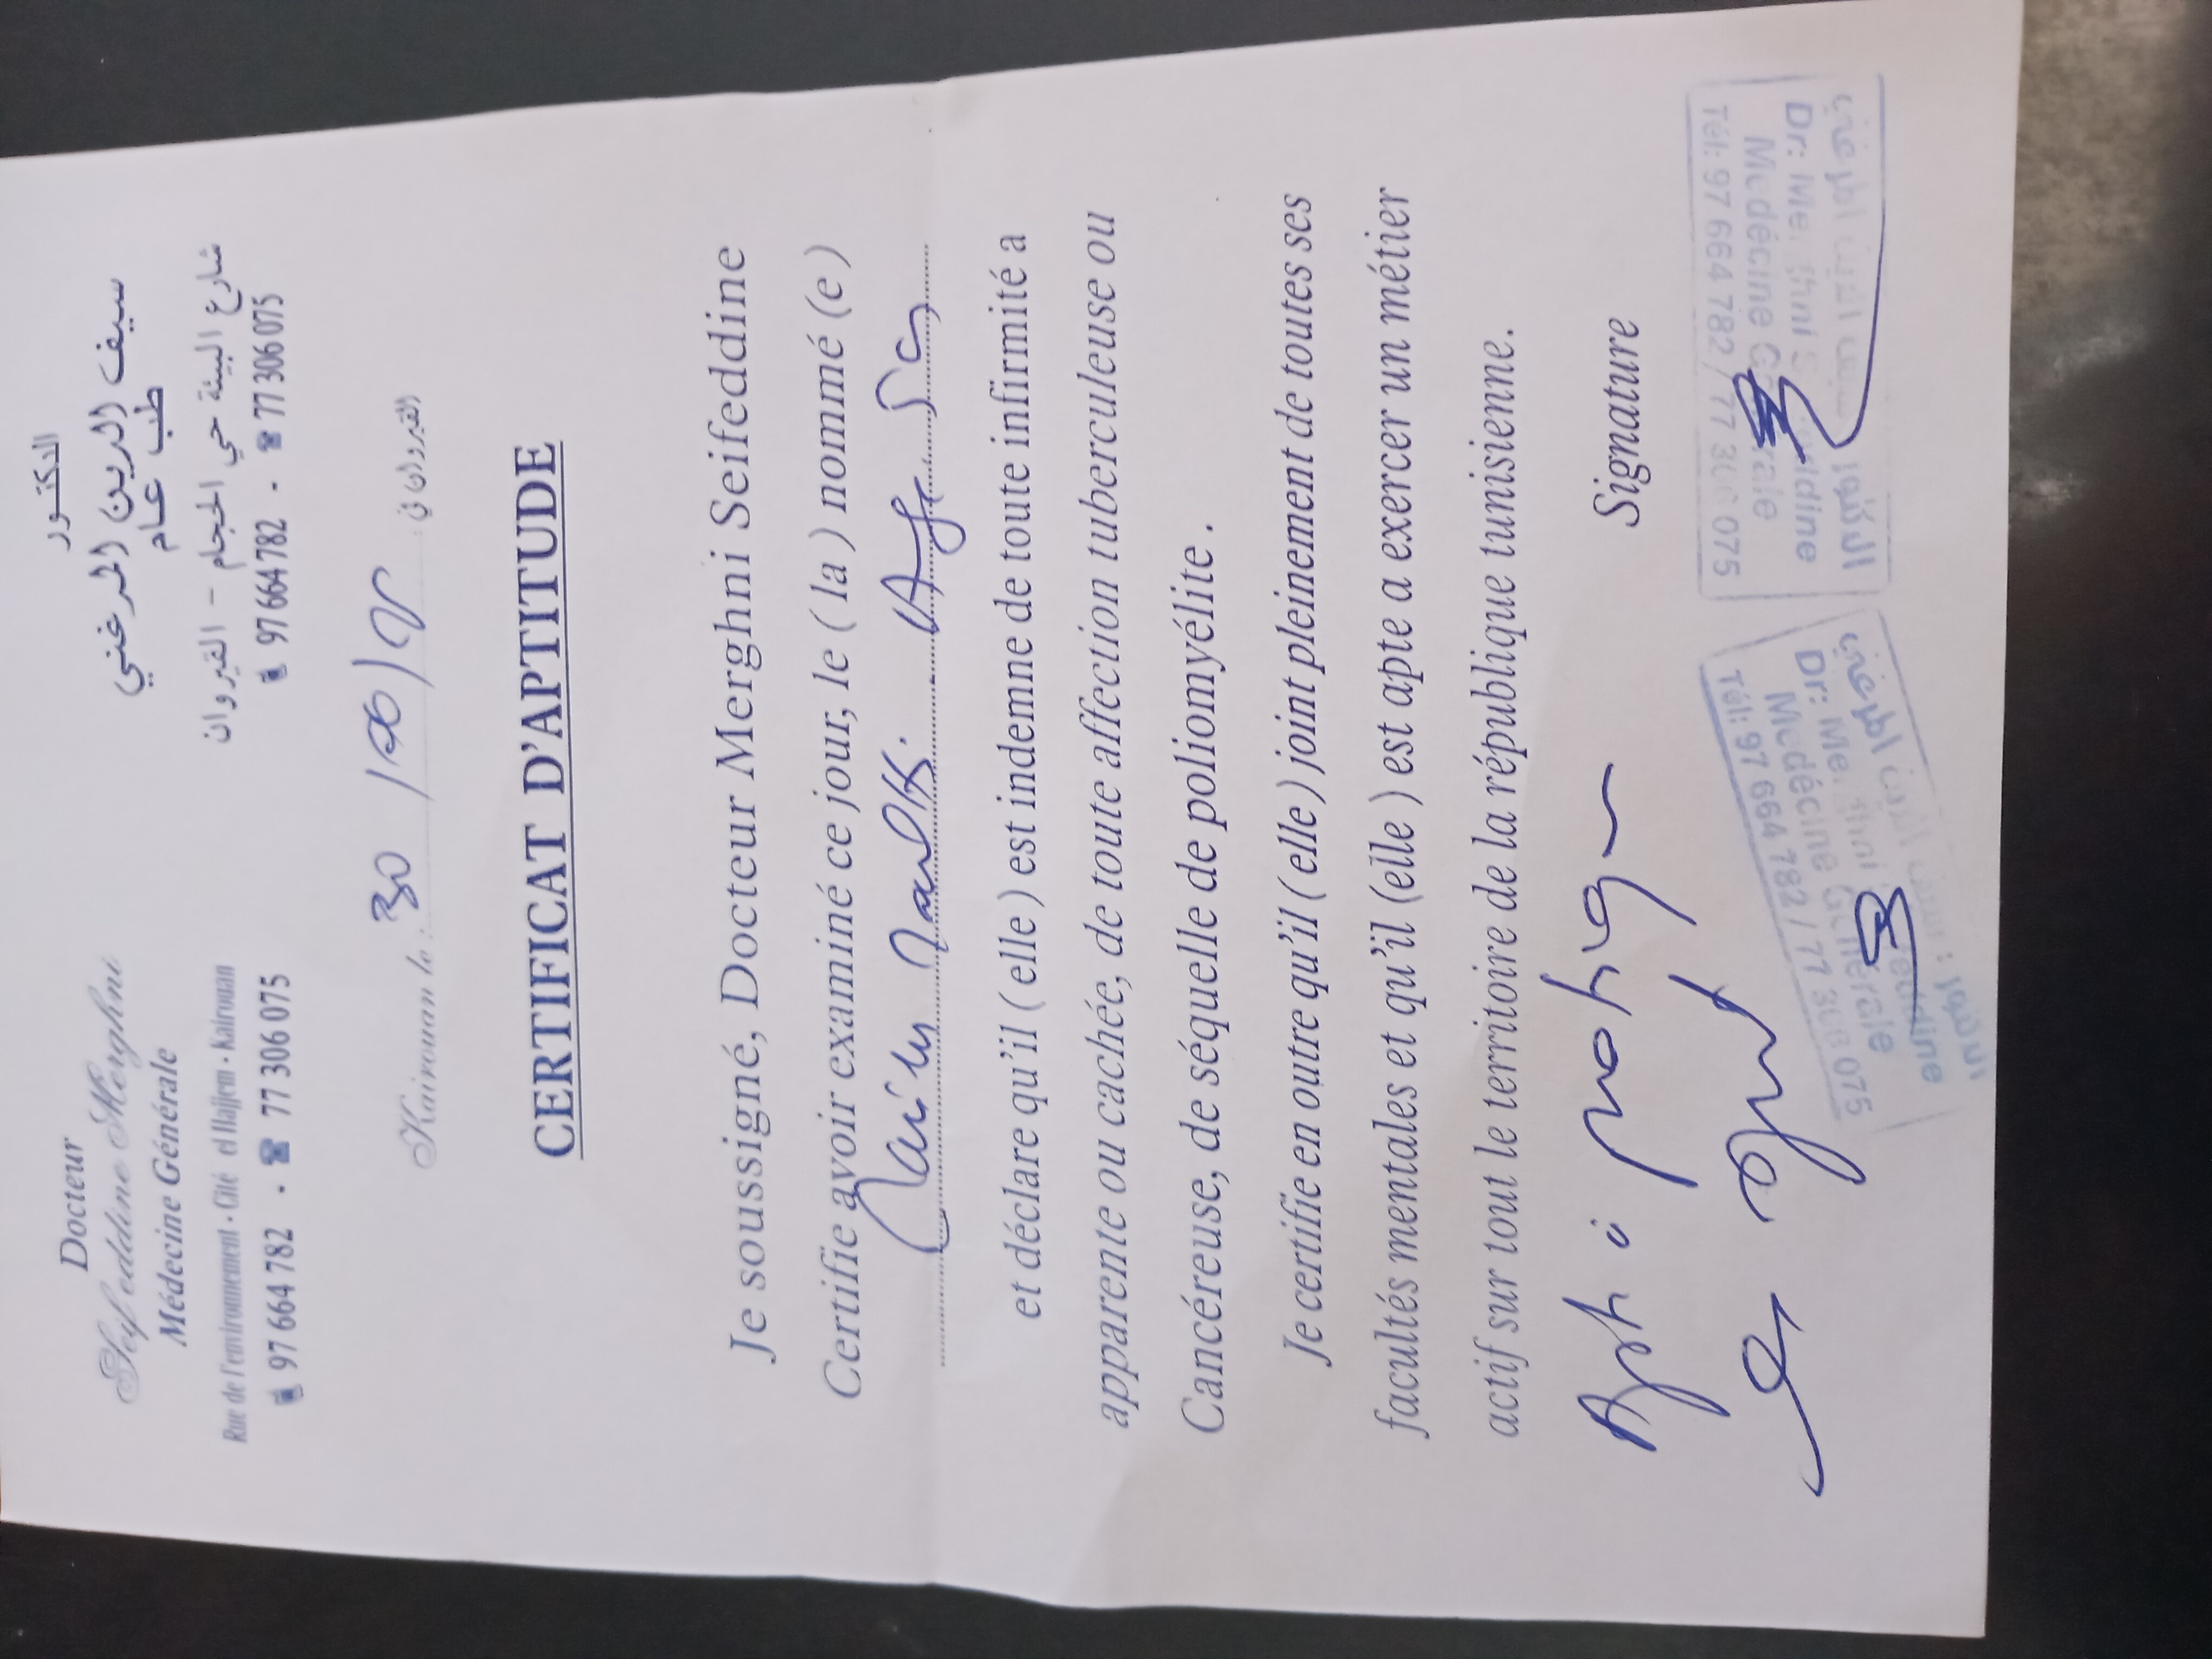 Docteur
Seifeddine Merghni
Médecine Générale
Rue de l'environnement - Cité el Hajjem - Kairouan
97 664 782 - 77 306 075
الدكتور
سيف الدين المرغني
طب عام
شارع البيئة حي الحجام - القيروان
97 664 782 - 77 306 075
Kairouan le : 30 / القيروان في :
CERTIFICAT D'APTITUDE
Je soussigné, Docteur Merghni Seifeddine
Certifie avoir examiné ce jour, le ( la ) nommé (e )
et déclare qu'il ( elle ) est indemne de toute infirmité a
apparente ou cachée, de toute affection tuberculeuse ou
Cancéreuse, de séquelle de poliomyélite .
Je certifie en outre qu'il ( elle ) joint pleinement de toutes ses
facultés mentales et qu'il (elle ) est apte a exercer un métier
actif sur tout le territoire de la république tunisienne.
Signature
الدكتور سيف الدين المرغني
Médécine Générale
Tél: 97 664 782 / 77 306 075
الدكتور : سيف الدين المرغني
Médécine Générale
Tél: 97 664 782 / 77 306 075